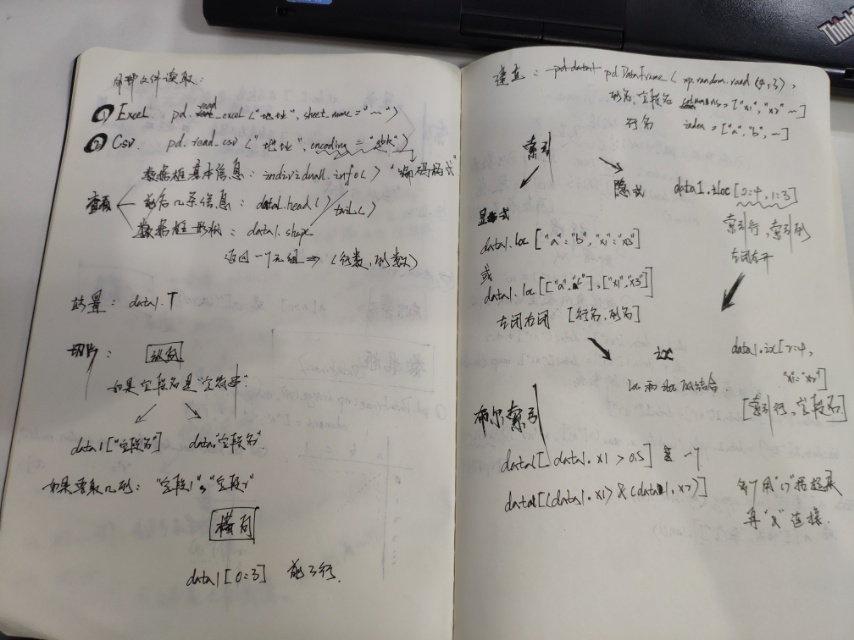 外部文件读取:
① Excel pd.read_excel("地址", sheet_name="…")
② Csv. pd.read_csv("地址", encoding="gbk")
"编码格式"
数据框基本信息: individual1.info()
查看 前后几条信息: data1.head() tail()
数据框形状: data1.shape
返回一个元组 ⇒ (行数, 列数)
转置: data1.T
切片: 纵向
如果字段名是"字符串":
data1["字段名"] data."字段名"
如果要取几列: "字段1", "字段2"
横向
data1[0:3] 前3行.
建立: pd.DataFrame(np.random.rand(4,3),
列名, 字段名 columns=["x1","x2"…]
行名 index=["a","b",…]
索引
显式 隐式 data1.iloc[2:4,1:3]
data1.loc["a":"b","x1":"x3"] 索引行,索引列
左闭右开
或
data1.loc[["a","b"],["x1","x3"]]
左闭右闭 [行名,列名]
ix data1.ix[2:4,
以上两种结合
[索引行,字段名]
布尔索引
data1[data1.x1>0.5] 一个
data1[(data1.x1>&(data1.x2)] 每个用"()"括起来
再"&"连接.
ThinkPad